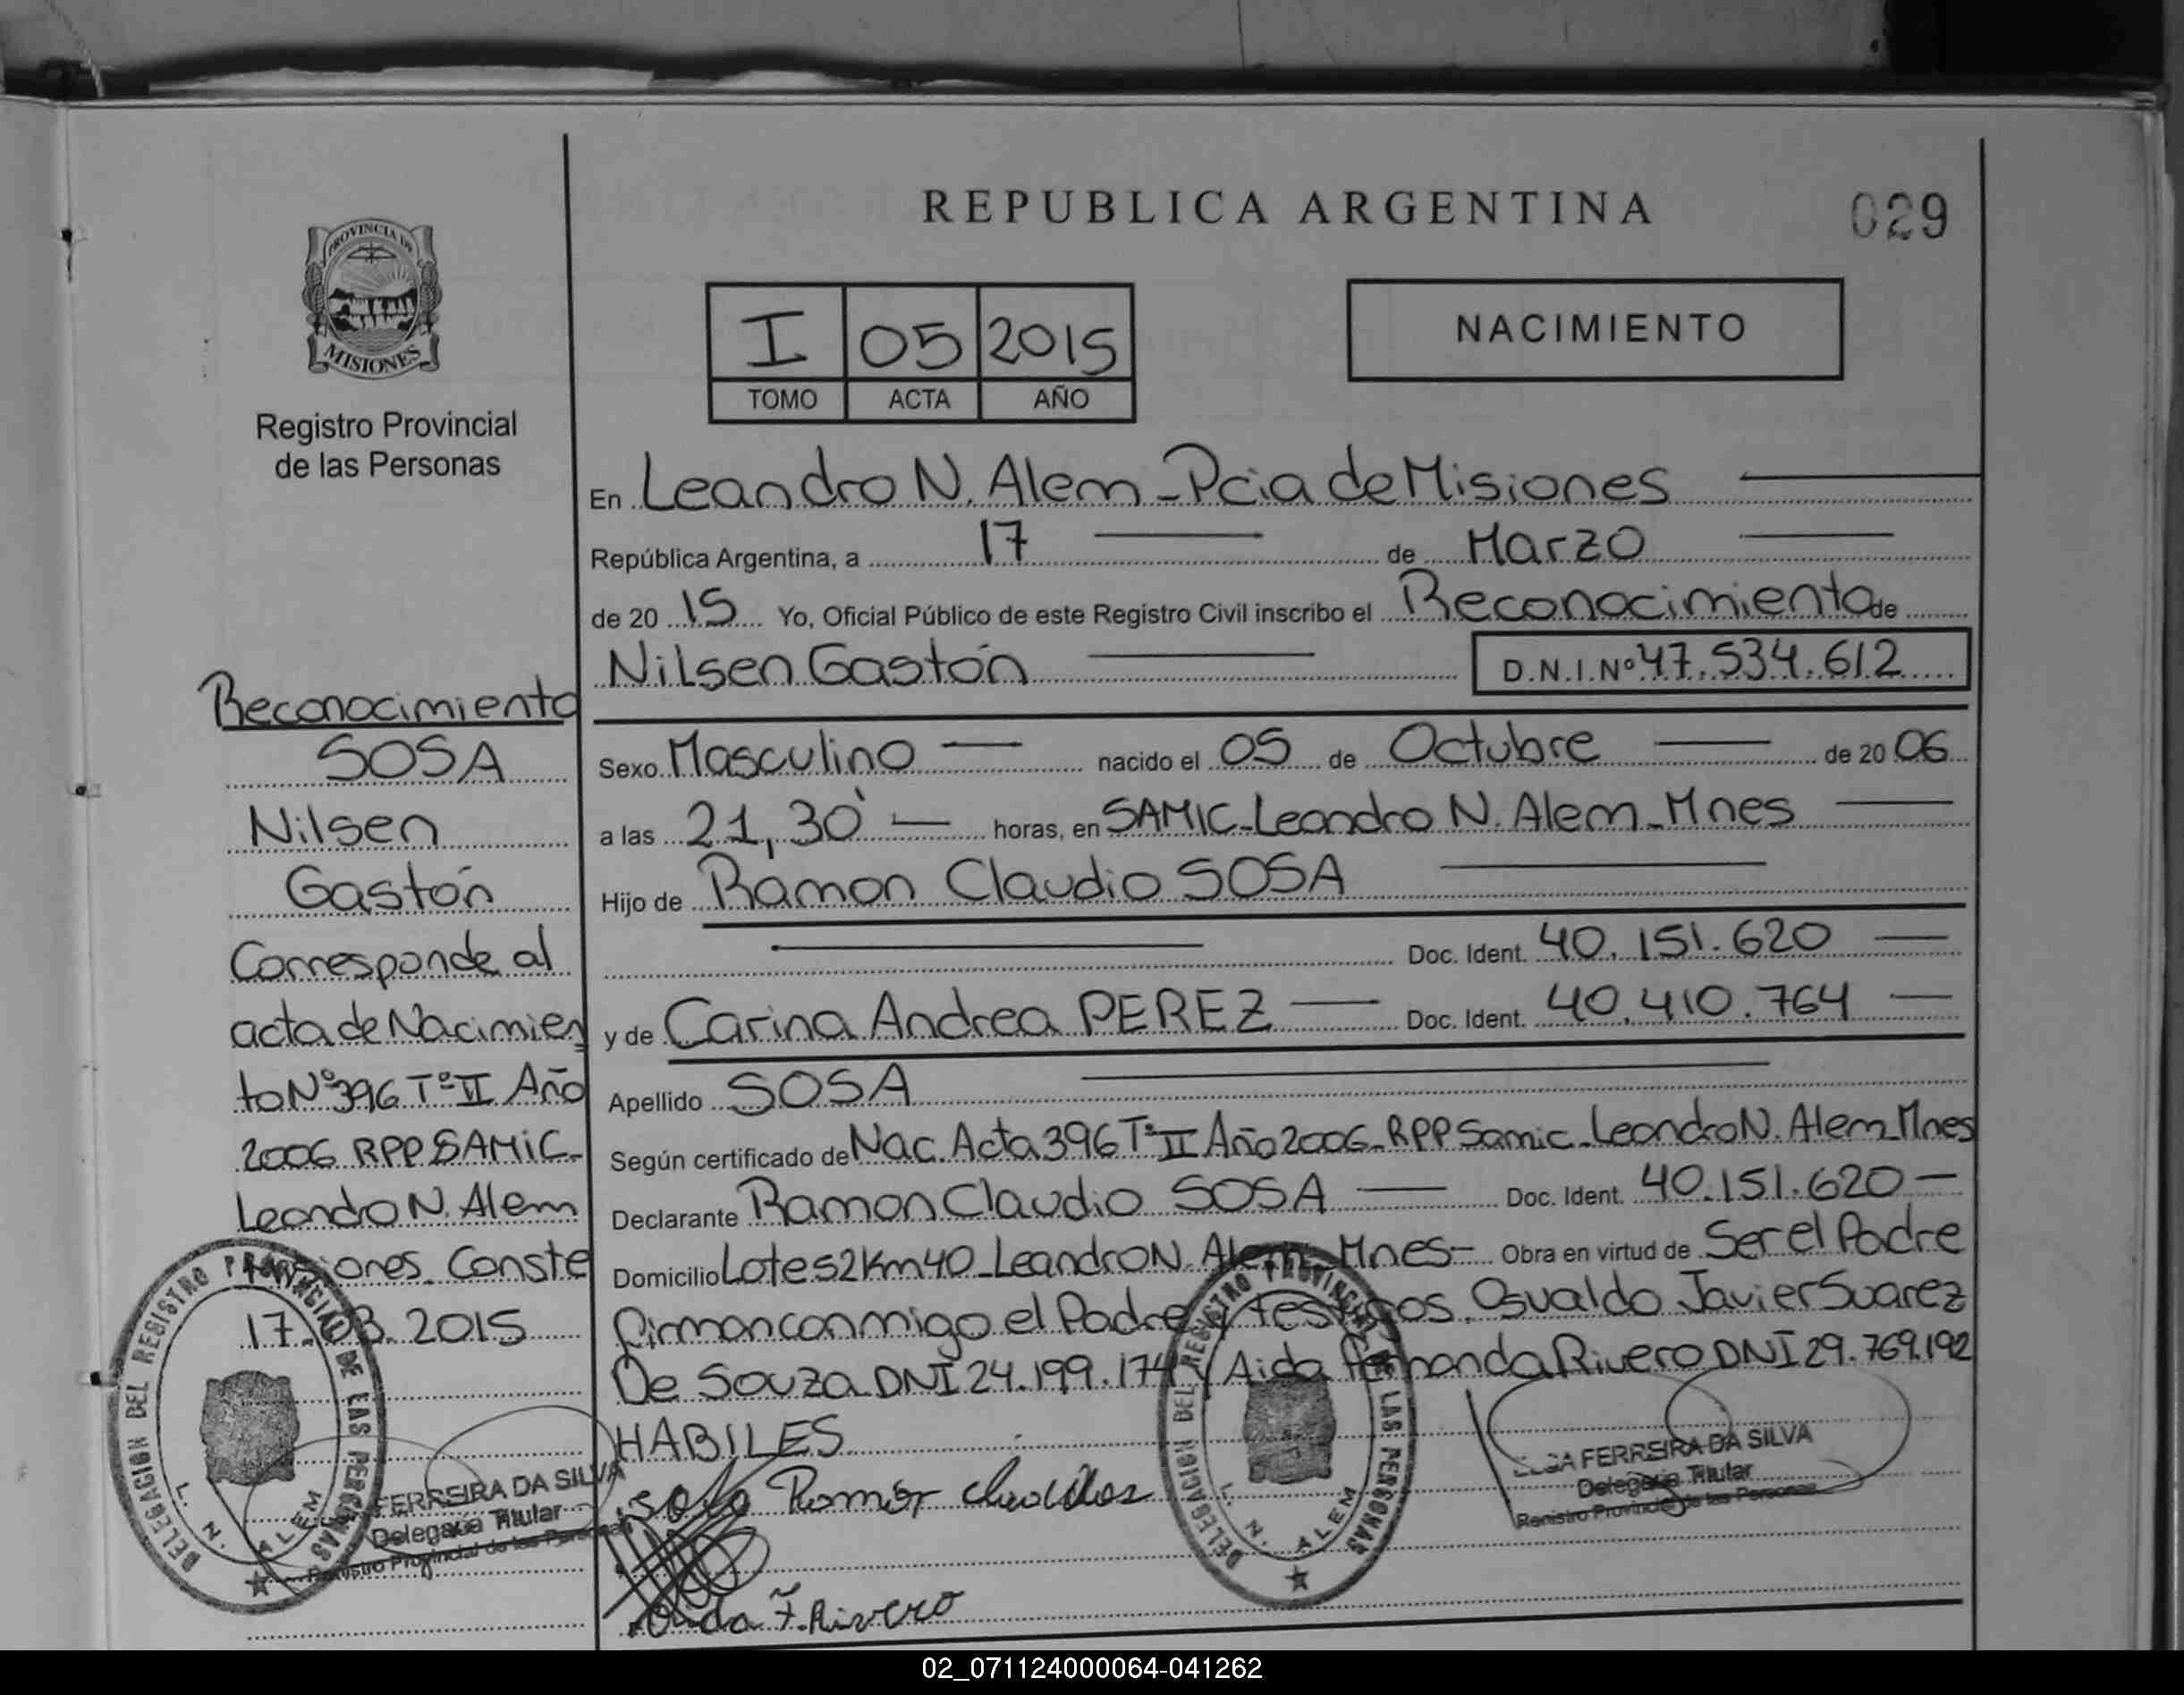 REPUBLICA ARGENTINA
029
PROVINCIA DE
MISIONES
Registro Provincial
de las Personas
I 05 2015
TOMO ACTA AÑO
NACIMIENTO
En Leandro N. Alem - Pcia de Misiones
República Argentina, a 17 de Marzo
de 20 15 Yo, Oficial Público de este Registro Civil inscribo el Reconocimiento de
Nilsen Gastón D.N.I.Nº 47.534.612
Sexo Masculino nacido el 05 de Octubre de 20 06
a las 21,30 horas, en SAMIC-Leandro N. Alem-Mnes
Hijo de Ramon Claudio SOSA
Doc. Ident. 40.151.620
y de Carina Andrea PEREZ Doc. Ident. 40.410.764
Apellido SOSA
Según certificado de Nac. Acta 396 Tº II Año 2006-RPP Samic-Leandro N. Alem-Mnes
Declarante Ramon Claudio SOSA Doc. Ident. 40.151.620
Domicilio Lote 52 Km 40-Leandro N. Alem-Mnes- Obra en virtud de Ser el Padre
firman conmigo el Padre y testigos. Osvaldo Javier Suarez
De Souza DNI 24.199.174 y Aida Fernanda Rivero DNI 29.769.192
HABILES
Reconocimiento
SOSA
Nilsen
Gastón
Corresponde al
acta de Nacimien
to Nº 396 Tº II Año
2006 RPP SAMIC-
Leandro N. Alem
Misiones. Conste
17.03.2015
DELEGACION DEL REGISTRO PROVINCIAL DE LAS PERSONAS
L. N. ALEM
FERREIRA DA SILVA
Delegada Titular
Registro Provincial de las Personas
DELEGACION DEL REGISTRO PROVINCIAL DE LAS PERSONAS
L. N. ALEM
FERREIRA DA SILVA
Delegada Titular
Registro Provincial de las Personas
Aida F. Rivero
02_071124000064-041262